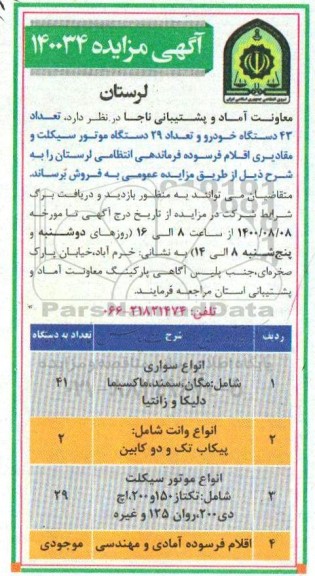 آگهی مزایده ۱۴۰۰۳۴
لرستان
معاونت آماد و پشتیبانی ناجا در نظر دارد، تعداد
۴۳ دستگاه خودرو و تعداد ۲۹ دستگاه موتور سیکلت و
مقادیری اقلام فرسوده فرماندهی انتظامی لرستان را به
شرح ذیل از طریق مزایده عمومی به فروش برساند.
متقاضیان می توانند به منظور بازدید و دریافت برگ
شرایط شرکت در مزایده از تاریخ درج آگهی تا مورخه
۱۴۰۰/۰۸/۰۸ از ساعت ۸ الی ۱۶ (روزهای دوشنبه و
پنج‌شنبه ۸ الی ۱۴) به نشانی: خرم آباد،خیابان پارک
صخره‌ای،جنب پلیس آگاهی پارکینگ معاونت آماد و
پشتیبانی استان مراجعه فرمایند.
تلفن: ۲۱۸۲۱۴۷۴-۰۶۶
ردیف شرح تعداد به دستگاه
۱ انواع سواری
شامل:مگان،سمند،ماکسیما
دلیکا و زانتیا ۴۱
۲ انواع وانت شامل:
پیکاپ تک و دو کابین ۲
۳ انواع موتور سیکلت
شامل:تکتاز۱۵۰و۲۰۰،اچ
دی۲۰۰،روان ۱۲۵ و غیره ۲۹
۴ اقلام فرسوده آمادی و مهندسی موجودی